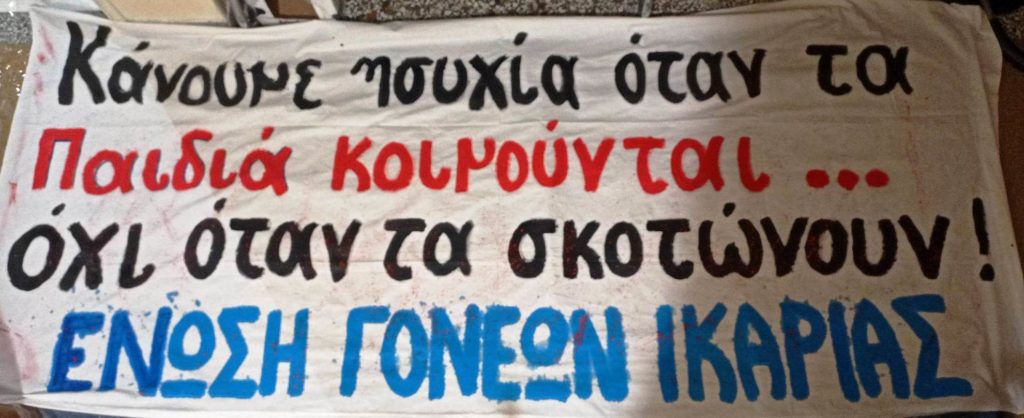 Κάνουμε ησυχία όταν τα
Παιδιά κοιμούνται ...
όχι όταν τα σκοτώνουν!
ΕΝΩΣΗ ΓΟΝΕΩΝ ΙΚΑΡΙΑΣ